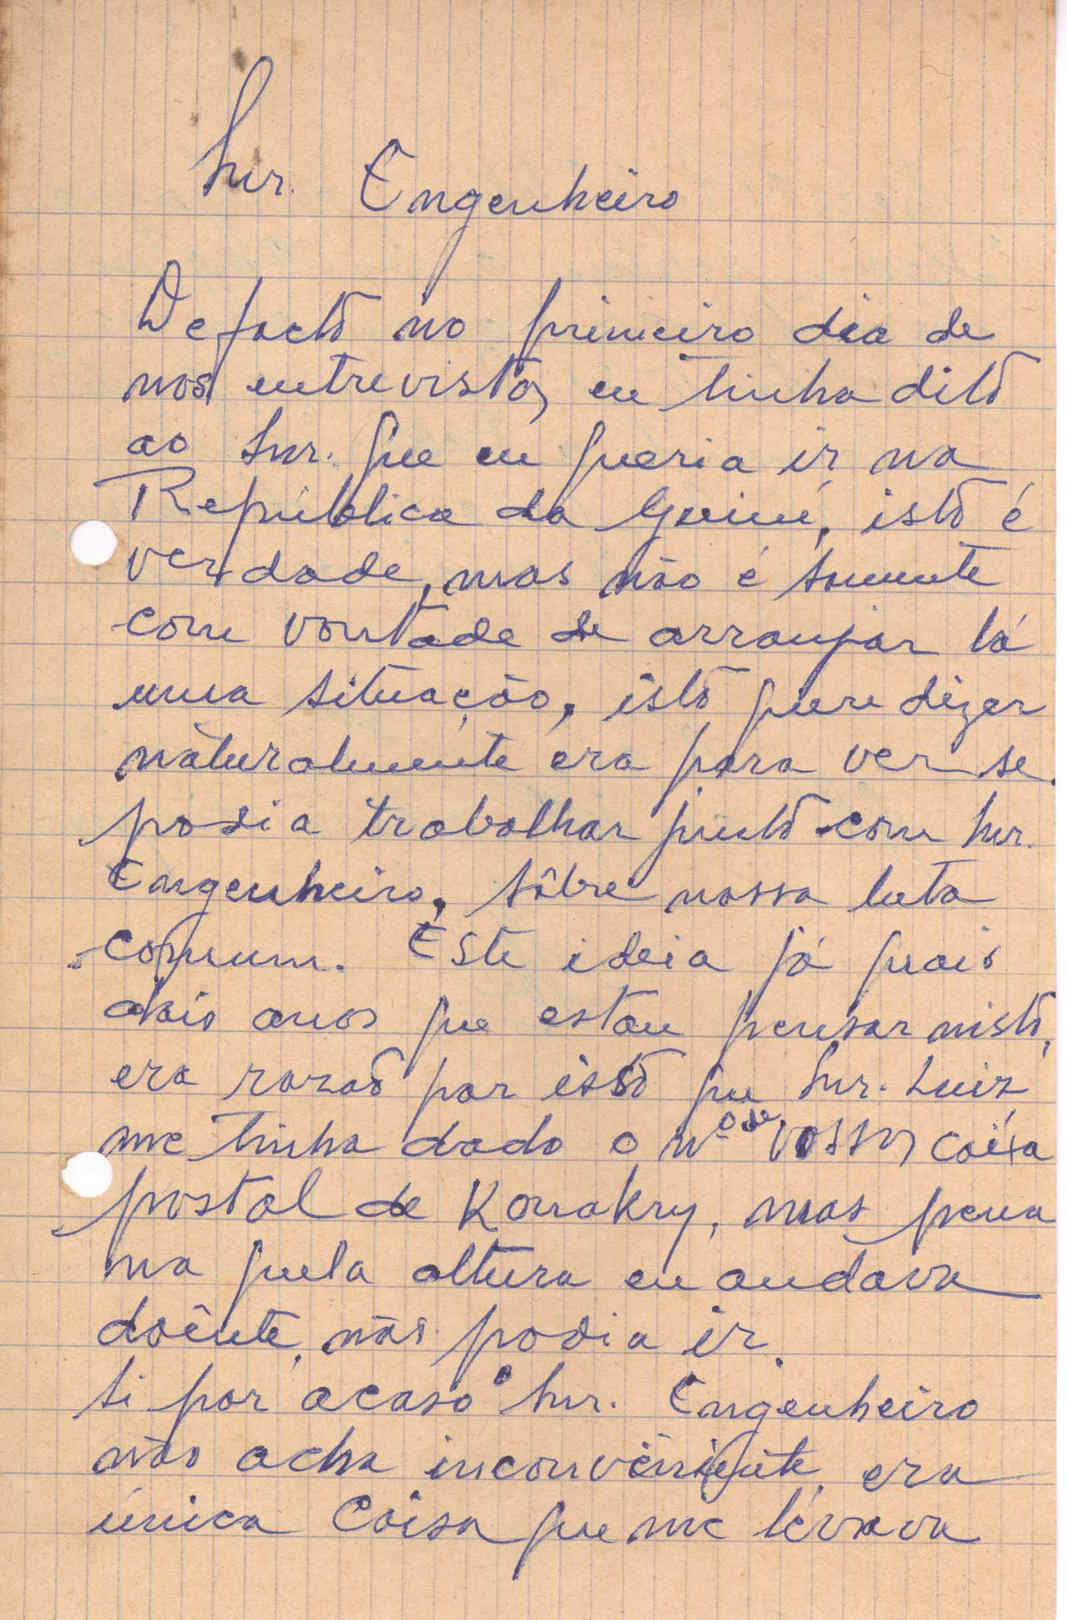 Snr. Engenheiro
De facto no primeiro dia de
nos entrevistas, eu tinha dito
ao Snr. que eu queria ir na
República da Guiné, isto é
verdade, mas não é somente
com vontade de arranjar lá
uma situação, isto quere dizer
naturalmente era para ver se
podia trabalhar junto com Snr.
Engenheiro, sôbre nossa luta
comum. Este ideia já quais
dois anos que estou pensar nisto,
era razaõ por isso que Snr. Luiz
me tinha dado o nº de vossos caixa
postal de Konakry, mas pena
na quela altura eu andava
doênte, não podia ir.
Si por acaso o Snr. Engenheiro
não acha inconvêniente, era
única coisa que me lévava